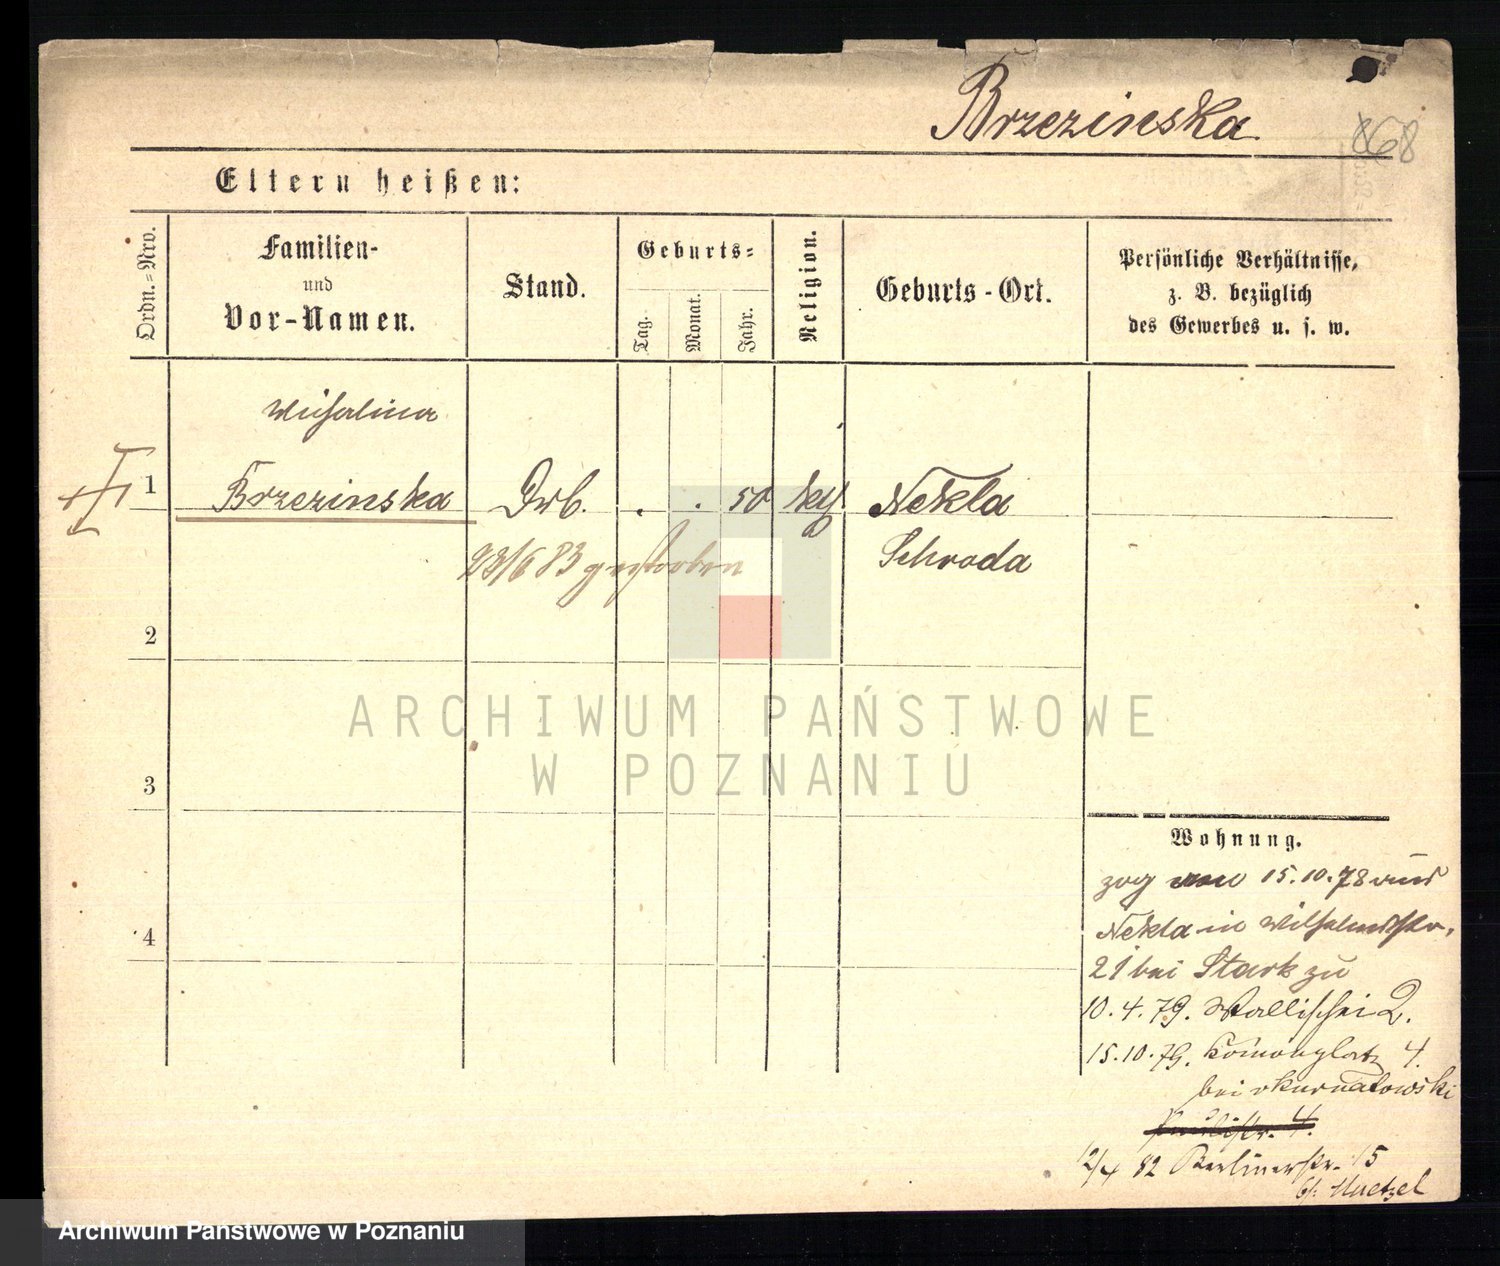 Brzezinska
868
Eltern heißen:
Ordn.=Nro.
Familien-
und
Vor-Namen.
Stand.
Geburts=
Tag.
Monat.
Jahr.
Religion.
Geburts-Ort.
Persönliche Verhältnisse,
z. B. bezüglich
des Gewerbes u. s. w.
1
Brzezinska
. . 50 kth
Nekla
Schroda
28/6 83 gestorben
2
3
4
ARCHIWUM PAŃSTWOWE
W POZNANIU
Wohnung.
zog am 15.10.78 aus
Nekla in Wilhelmstr.
21 bei Stark zu
10.4.79. Wallischei 2.
15.10.79. 4.
bei
4.
12/4 82 Berlinerstr. 15
Archiwum Państwowe w Poznaniu